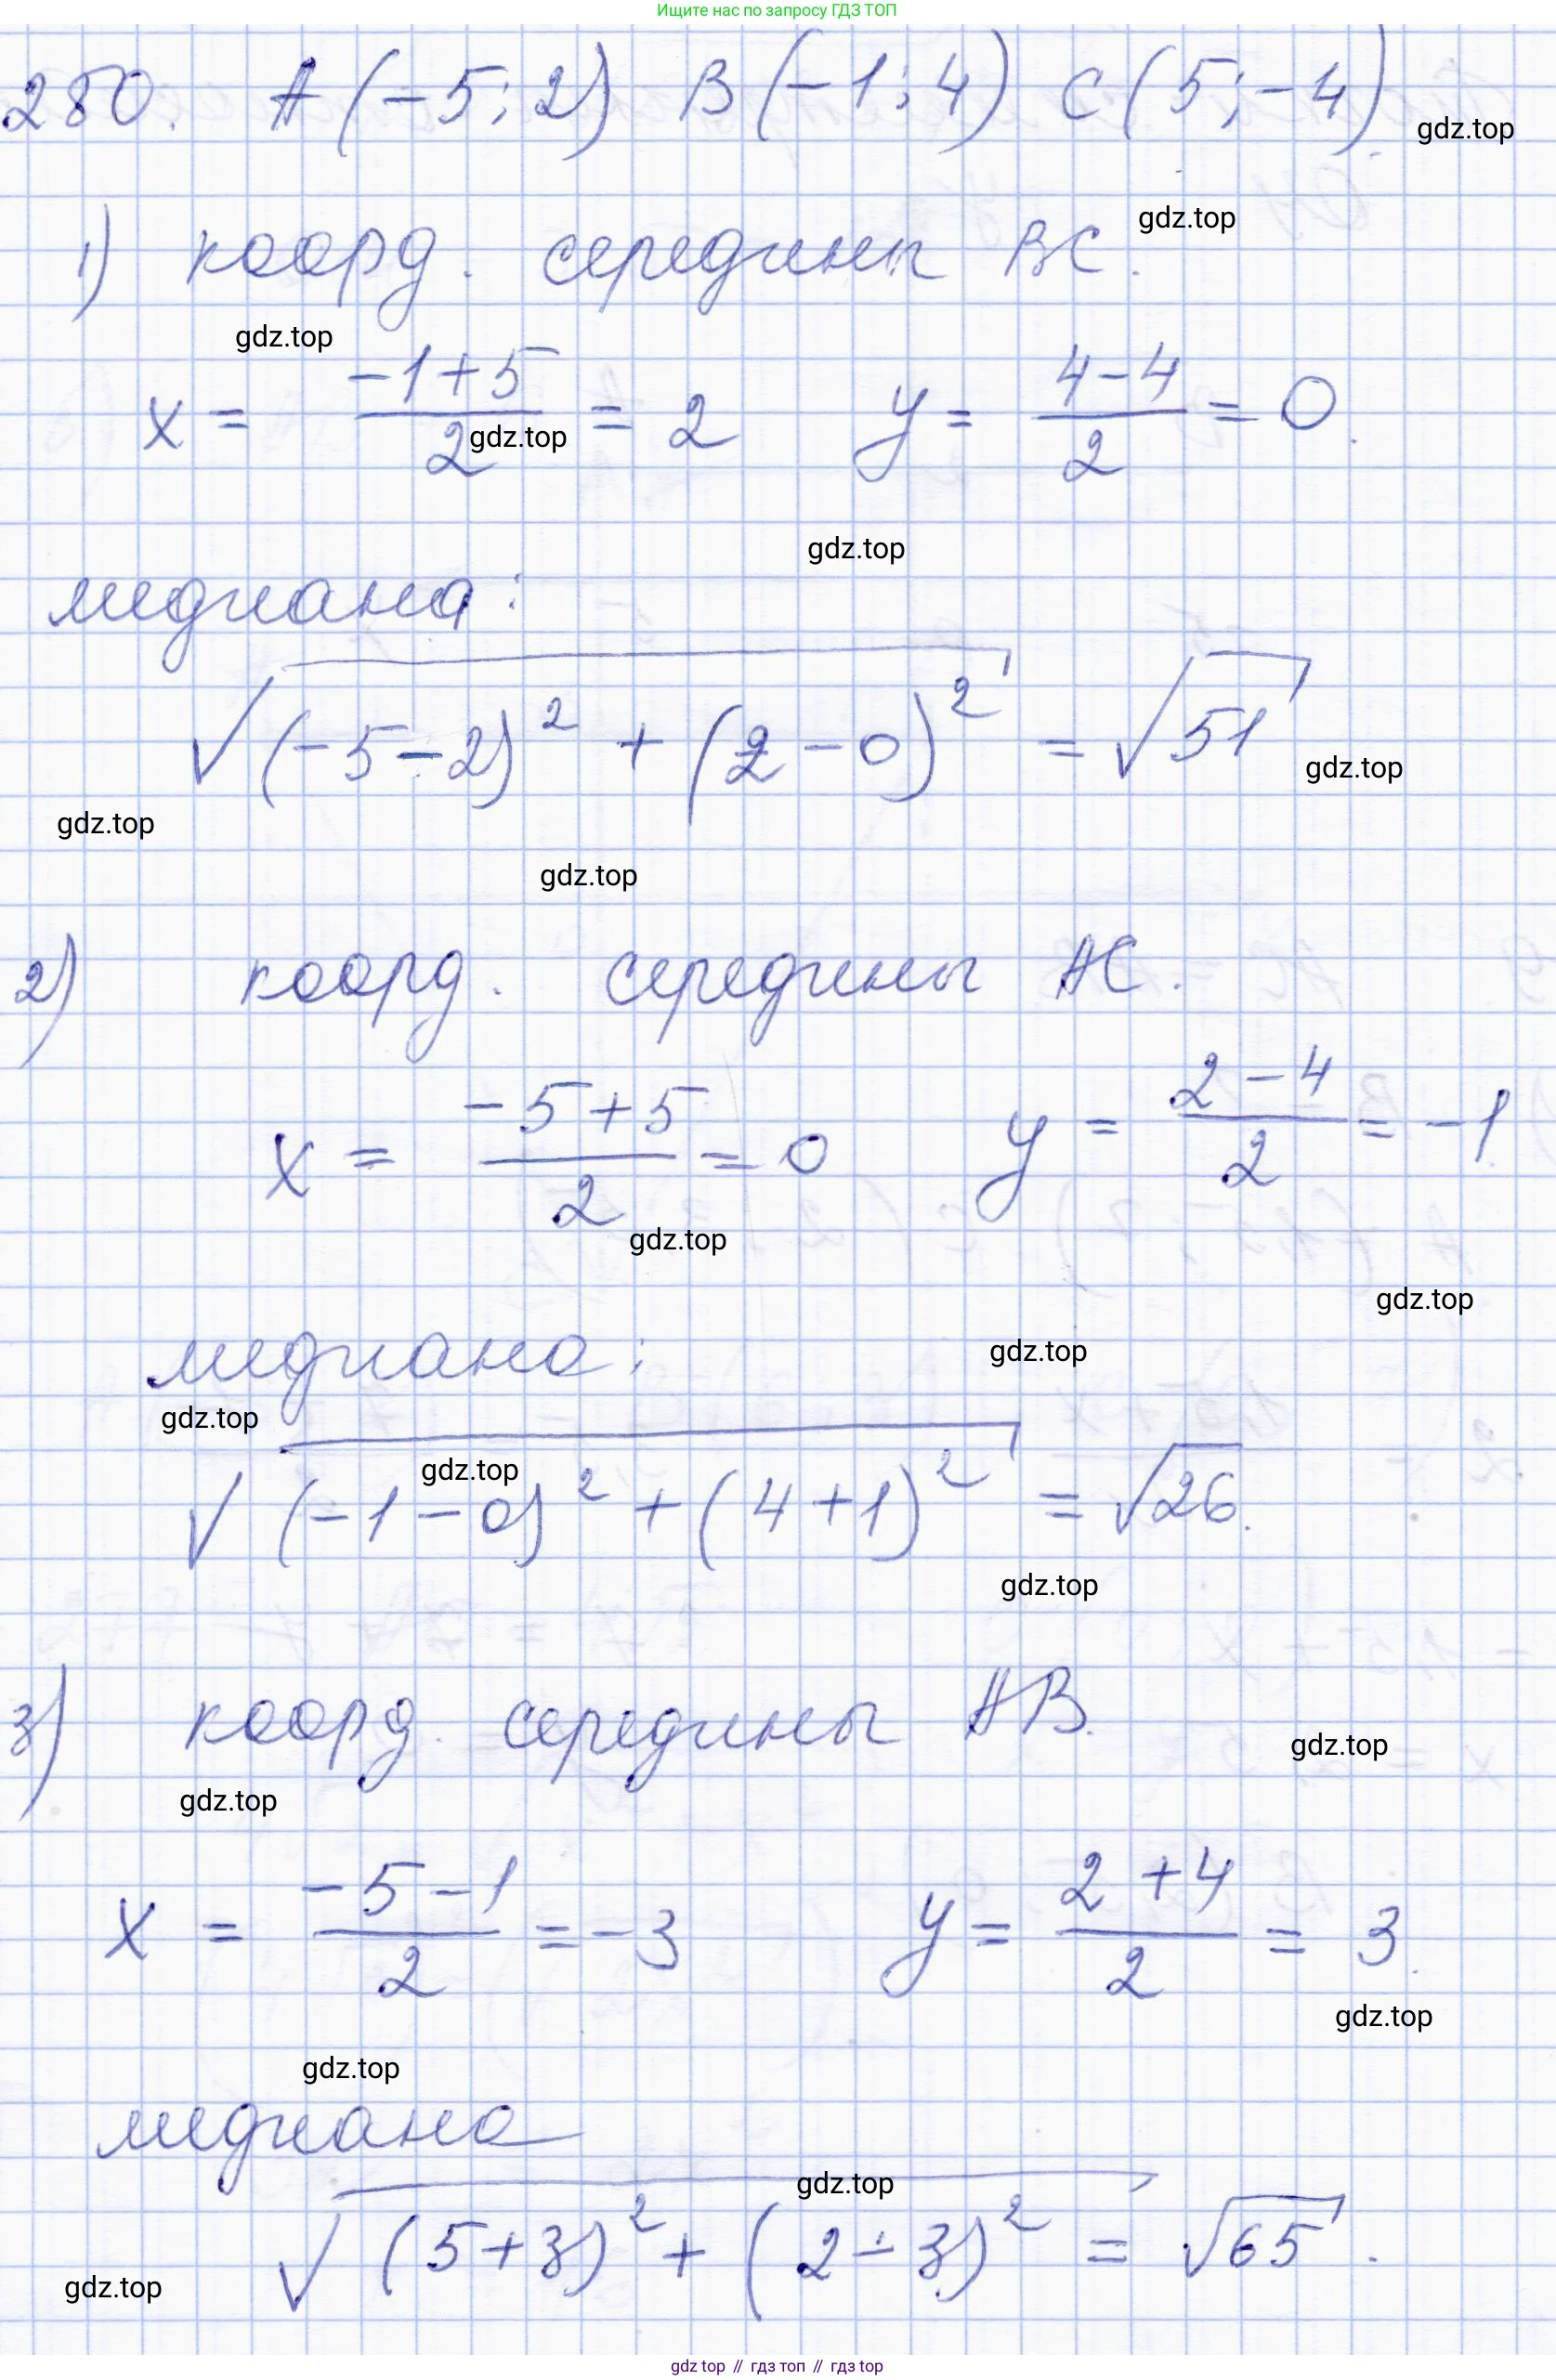 Ищите нас по запросу ГДЗ ТОП
280. A(-5; 2) B(-1; 4) C(5; -4).
gdz.top
gdz.top
1) коорд. середины BC.
gdz.top
x = (-1+5)/2 = 2 y = (4-4)/2 = 0.
gdz.top
gdz.top
медиана:
√((-5-2)² + (2-0)²) = √51
gdz.top
gdz.top
gdz.top
2) коорд. середины AC.
x = (-5+5)/2 = 0 y = (2-4)/2 = -1
gdz.top
gdz.top
медиана:
gdz.top
gdz.top
gdz.top
√((-1-0)² + (4+1)²) = √26.
gdz.top
3) коорд. середины AB.
gdz.top
gdz.top
x = (-5-1)/2 = -3 y = (2+4)/2 = 3.
gdz.top
gdz.top
медиана
gdz.top
√((5+3)² + (2-3)²) = √65.
gdz.top
gdz top // гдз топ // гдз top